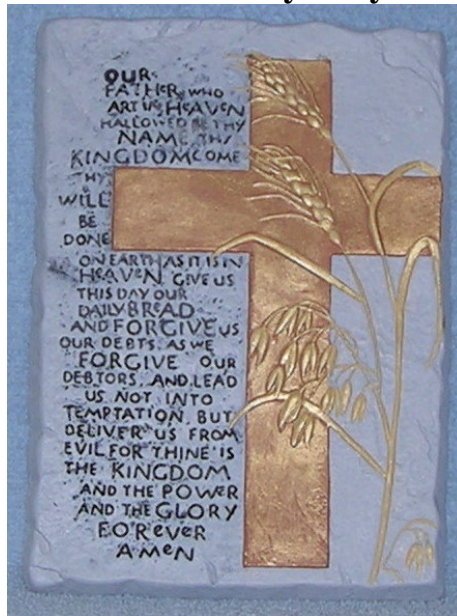 OUR
FATHER WHO
ART IN HEAVEN
HALLOWED BE THY
NAME THY
KINGDOM COME
THY
WILL
BE
DONE
ON EARTH AS IT IS IN
HEAVEN GIVE US
THIS DAY OUR
DAILY BREAD
AND FORGIVE US
OUR DEBTS. AS WE
FORGIVE OUR
DEBTORS. AND LEAD
US NOT INTO
TEMPTATION. BUT
DELIVER US FROM
EVIL FOR THINE IS
THE KINGDOM
AND THE POWER
AND THE GLORY
FOREVER
AMEN